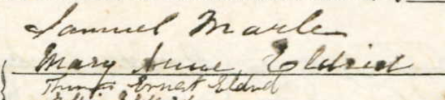 Samuel Marle
Mary Anne Eldried
Thomas Ernest Eldred